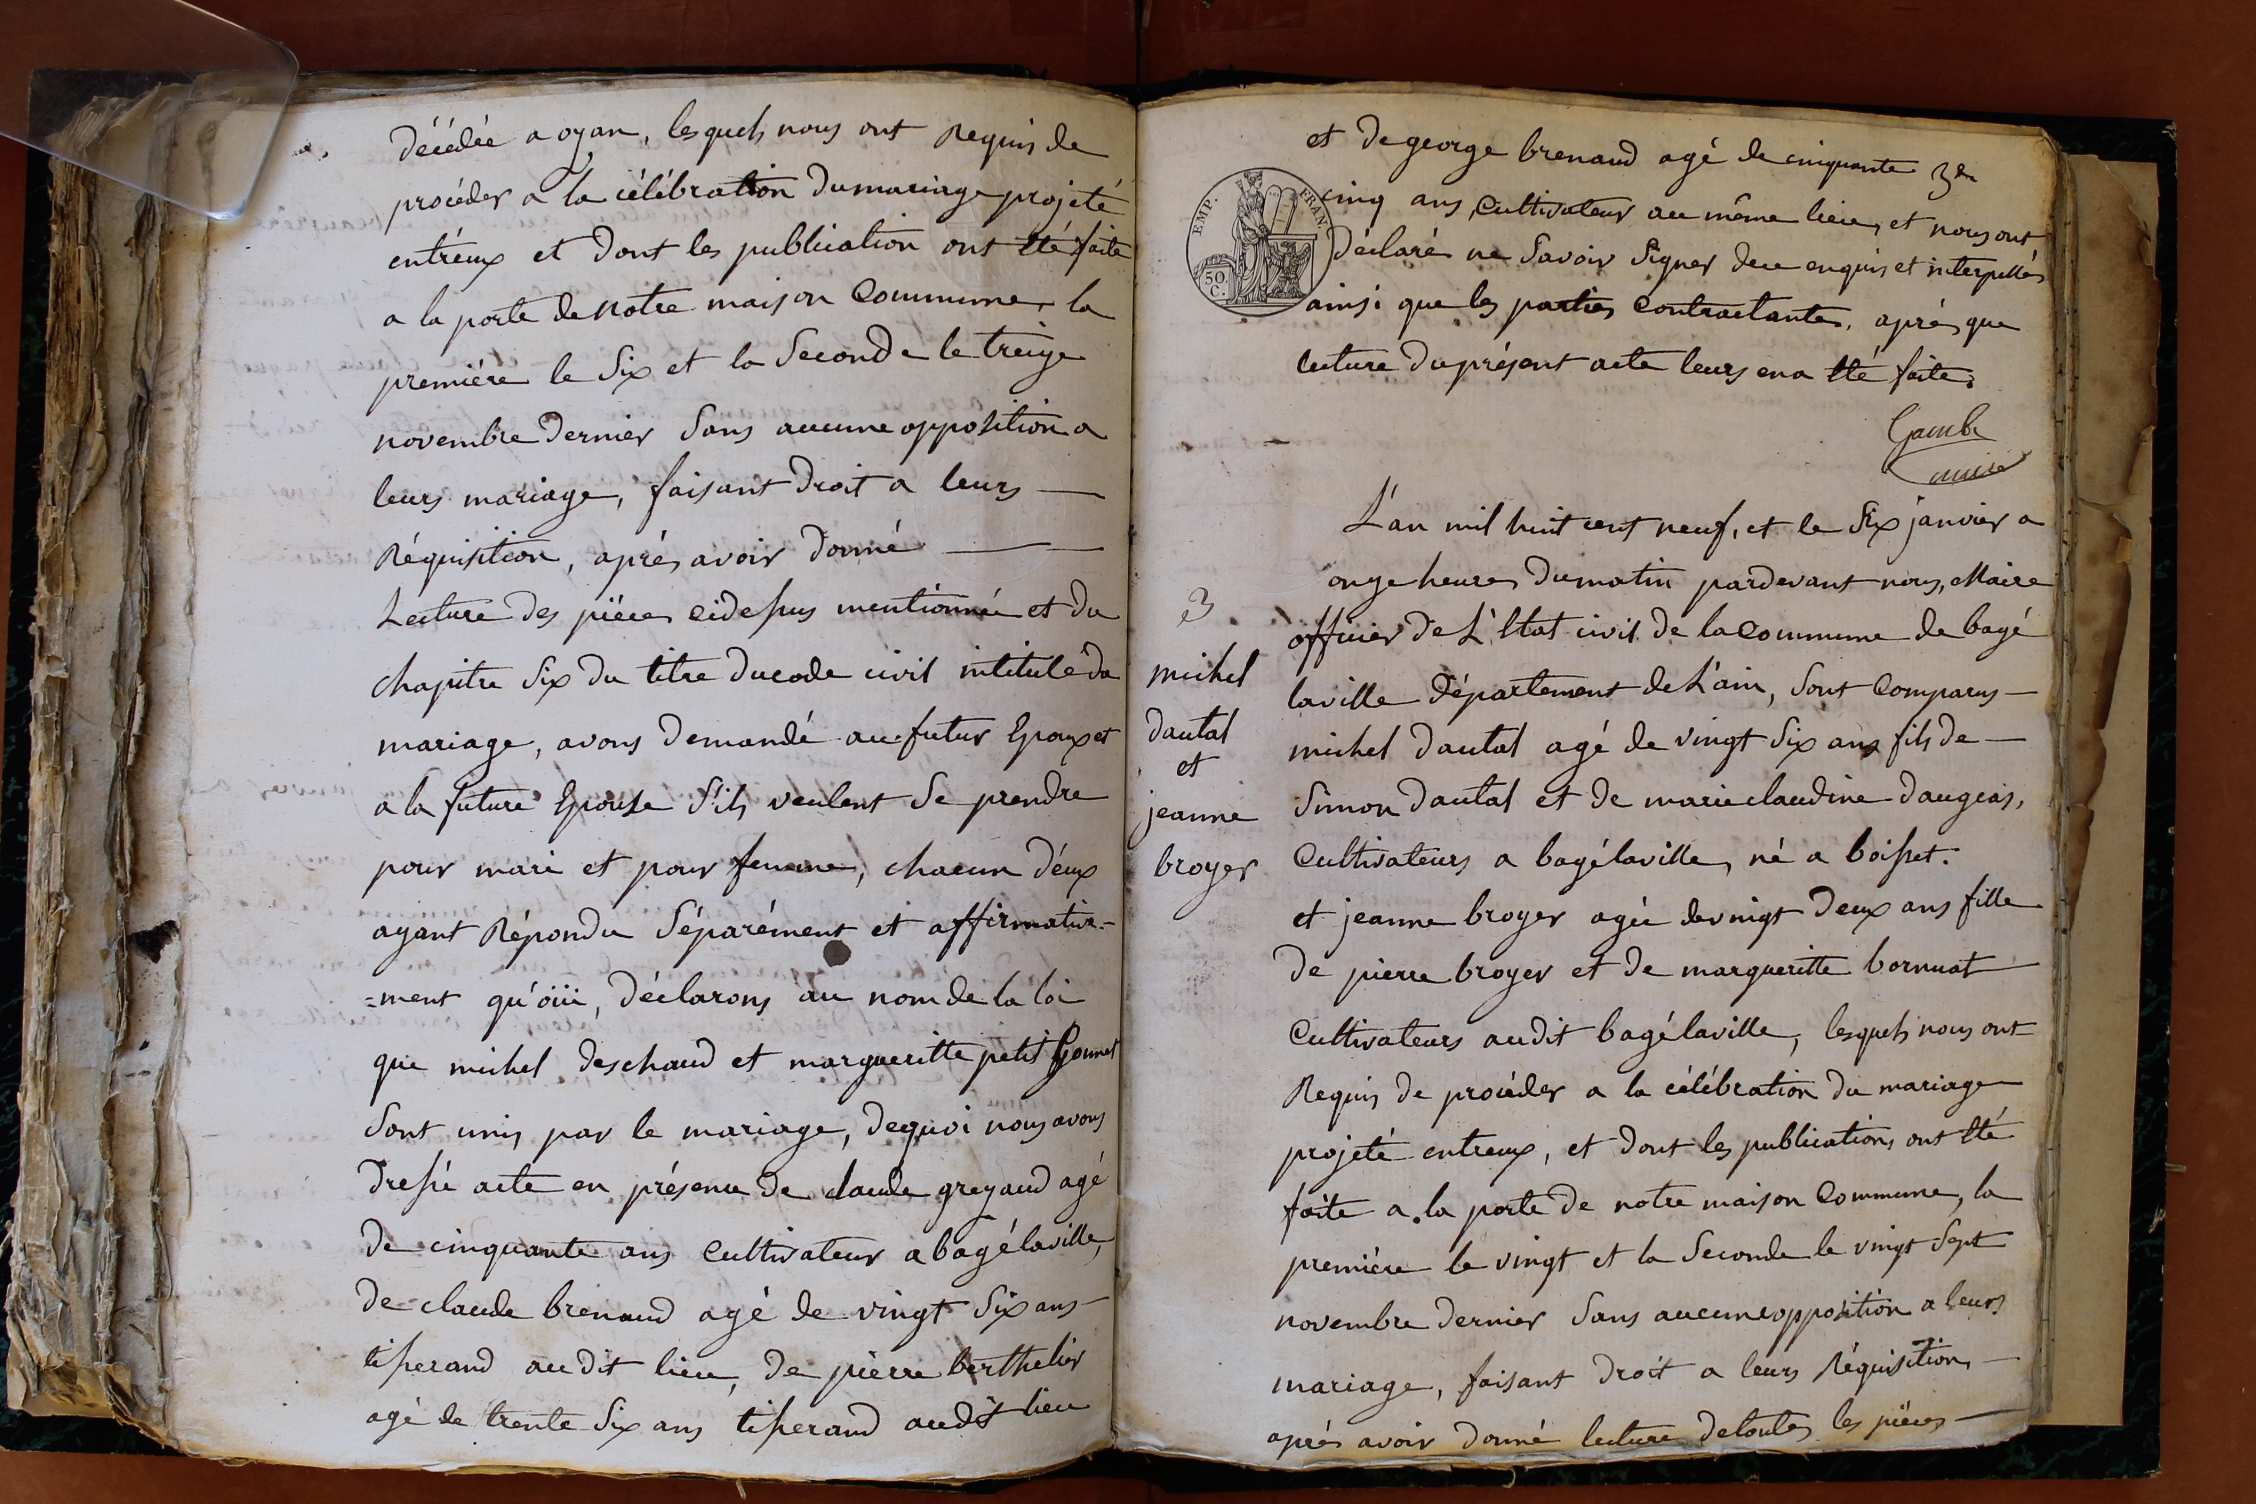 décédée a oyan, lesquels nous ont Requis de
procéder a la célébration du mariage projeté
entréux et dont les publication ont été faite
a la porte de notre maison Commune, la
premiére le Six et la Seconde le treize
novembre dernier Sans aucune opposition a
leurs mariage, faisant droit a leurs
Réquisition, aprés avoir donné
Lecture des piéces cidessus mentionnée et du
chapitre Six du titre du code civil intitulé du
mariage, avons demandé au futur Epoux et
a la future Epouse S'ils veulent Se prendre
pour mari et pour femme, chacun d'éux
ayant Répondu Séparément et affirmative-
=ment qu'oüi, déclarons au nom de la loi
que michel deschaud et margueritte petit Gonnet
Sont unis par le mariage, de quoi nous avons
dressé acte en présence de claude greyaud agé
de cinquante ans Cultivateur a bagé laville,
de claude brenaud agé de vingt Six ans
tisserand audit lieu, de pierre berthelier
agé de trente Six ans tisserand audit lieu
et de george brenaud agé de cinquante
3em
EMP. FRAN.
50 C.
cinq ans, Cultivateur au même lieu, et nous ont
déclarés ne Savoir Signer de ce enquis et interpellés
ainsi que les parties Contractantes, aprés que
lecture du présent acte leurs en a été faite.
maire
L'an mil huit cent neuf, et le Six janvier a
onze heures du matin pardevant nous, Maire
officier de L'Etat civil de la Commune de bagé
laville département de L'ain, Sont Comparus
3
michel
dautal
et
jeanne
broyer
michel dautal agé de vingt Six ans fils de
Simon dautal et de marie claudine daugeas,
Cultivateurs a bagé laville, né a boisset.
et jeanne broyer agée de vingt deux ans fille
de pierre broyer et de margueritte bornuat
Cultivateurs audit bagé laville, lesquels nous ont
Requis de procéder a la célébration du mariage
projeté entreux, et dont les publications ont été
faite a la porte de notre maison Commune, la
premiére le vingt et la Seconde le vingt Sept
novembre dernier Sans aucune opposition a leurs
mariage, faisant droit a leurs Réquisition,
aprés avoir donné lecture de toutes les piéces